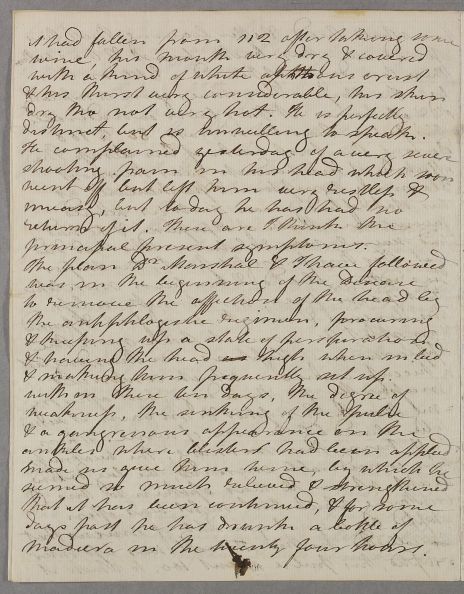 it had fallen from 112 after taking some
wine, his mouth very dry & covered
with a kind of white aphthous crust
& his thirst very considerable, his skin
dry tho not very hot. He is perfectly
distinct, but is unwilling to speak.
He complained yesterday of a very sever
shooting pain in his head which soon
went off but left him very restless &
uneasy, but to day he has had no
return of it. These are I think the
principal present symptoms.
The plan Dr. Marshal & I have followed
was in the beginning of the Disease
to remove the affection of the head by
the antiphlogistic regimen, procuring
& keeping up a state of perspiration
& having the head high when in bed
& making him frequently sit up.
within these ten days, the degree of
weakness, the sinking of the Pulse
& a gangrenous appearance on the
ankles where blisters had been applied
made us give him wine, by which he
seemed so much relieved & strengthened
that it has been continued, & for some
days past he has drunk a bottle of
Madeira in the twenty four hours.